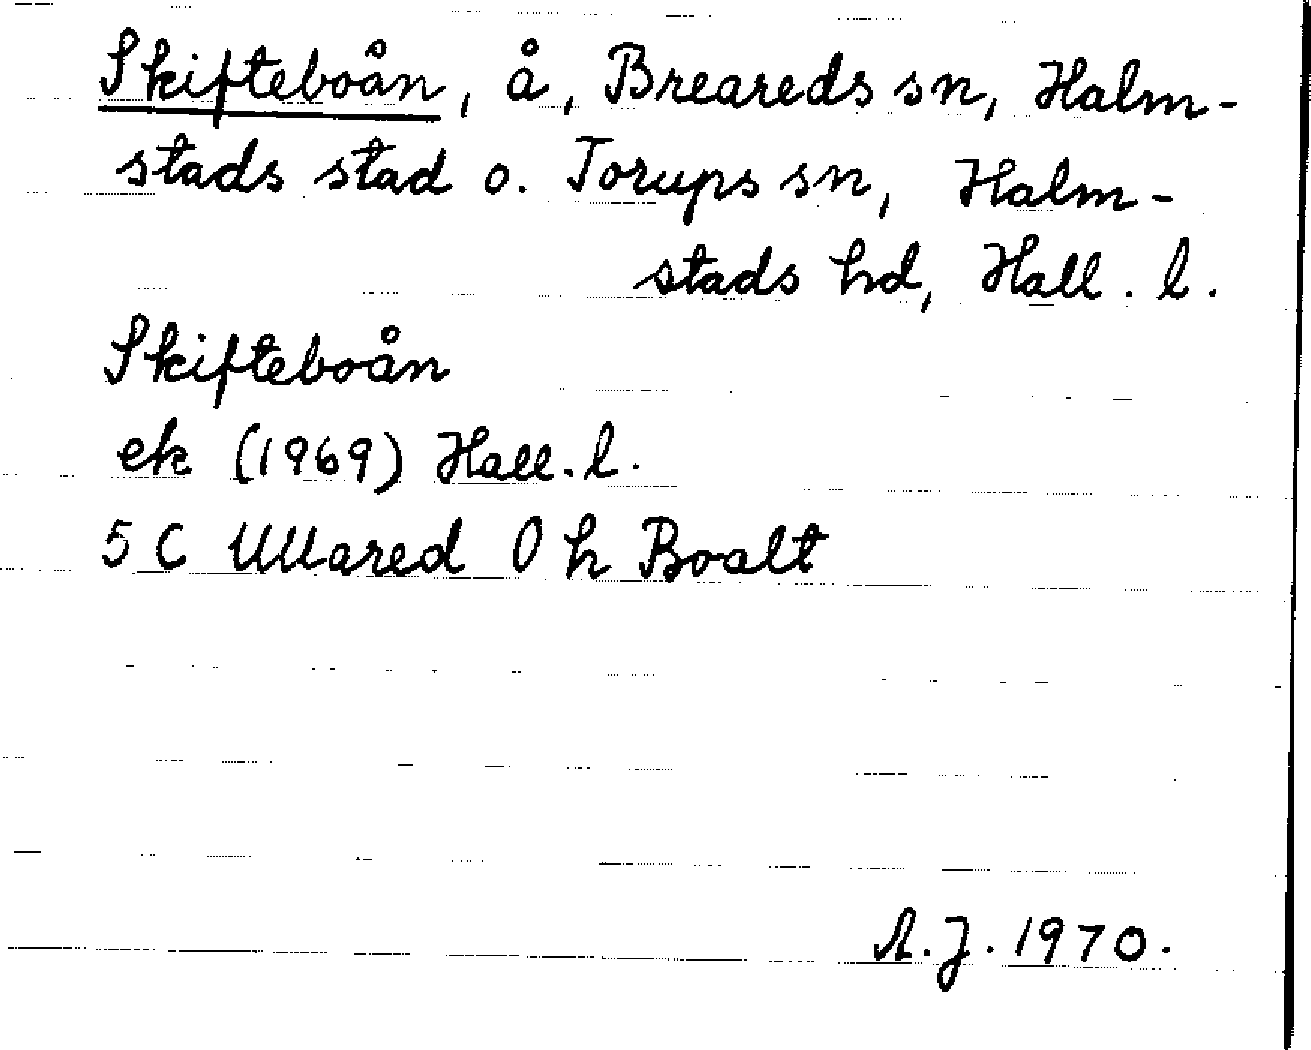 Skifteboån, å, Breareds sn, Halm-
stads stad o. Torups sn, Halm-
stads hd, Hall. l.
Skifteboån
ek (1969) Hall. l.
5 C Ullared O h Boalt
A.J. 1970.